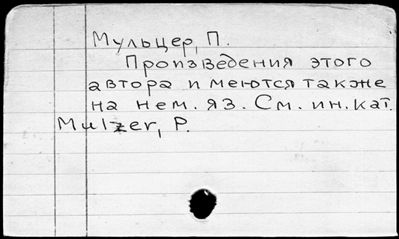 Мульцер, П.
Произведения этого
автора имеются также
на нем. яз. См. ин. кат.
Mulzer, P.